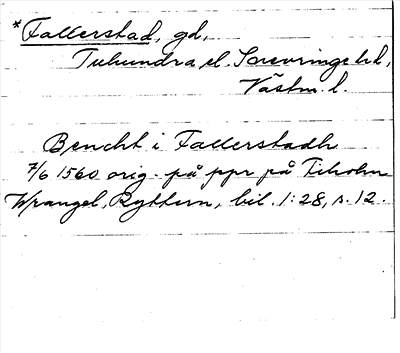 *Fallerstad, gd,
Tuhundra el. Snevringe hd,
Västm. l.
Bencht i Fallerstadh
7/6 1560 orig. på ppr på Tidoholm
Wrangel, Ryttern, bil. 1:28, s. 12.